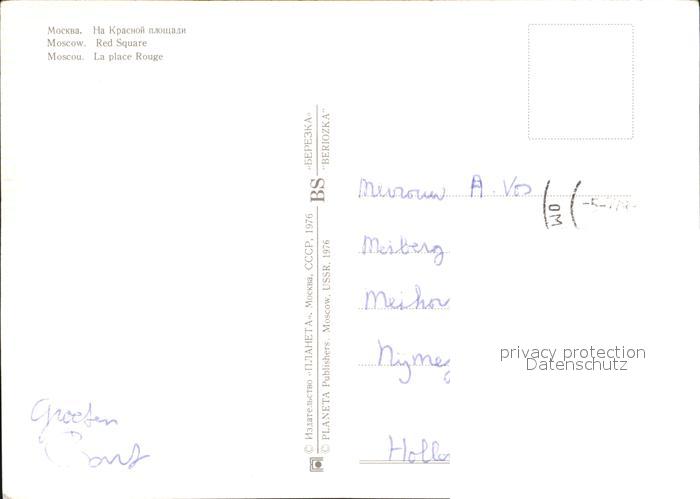 Москва. На Красной площади
Moscow. Red Square
Moscou. La place Rouge
© Издательство «ПЛАНЕТА». Москва, СССР, 1976 BS «БЕРЕЗКА»
© PLANETA Publishers. Moscow, USSR. 1976 "BERIOZKA"
Mevrouw A. Vos
Meiberg
Meiho
Nijmeg
Hollo
privacy protection
Datenschutz
Groeten